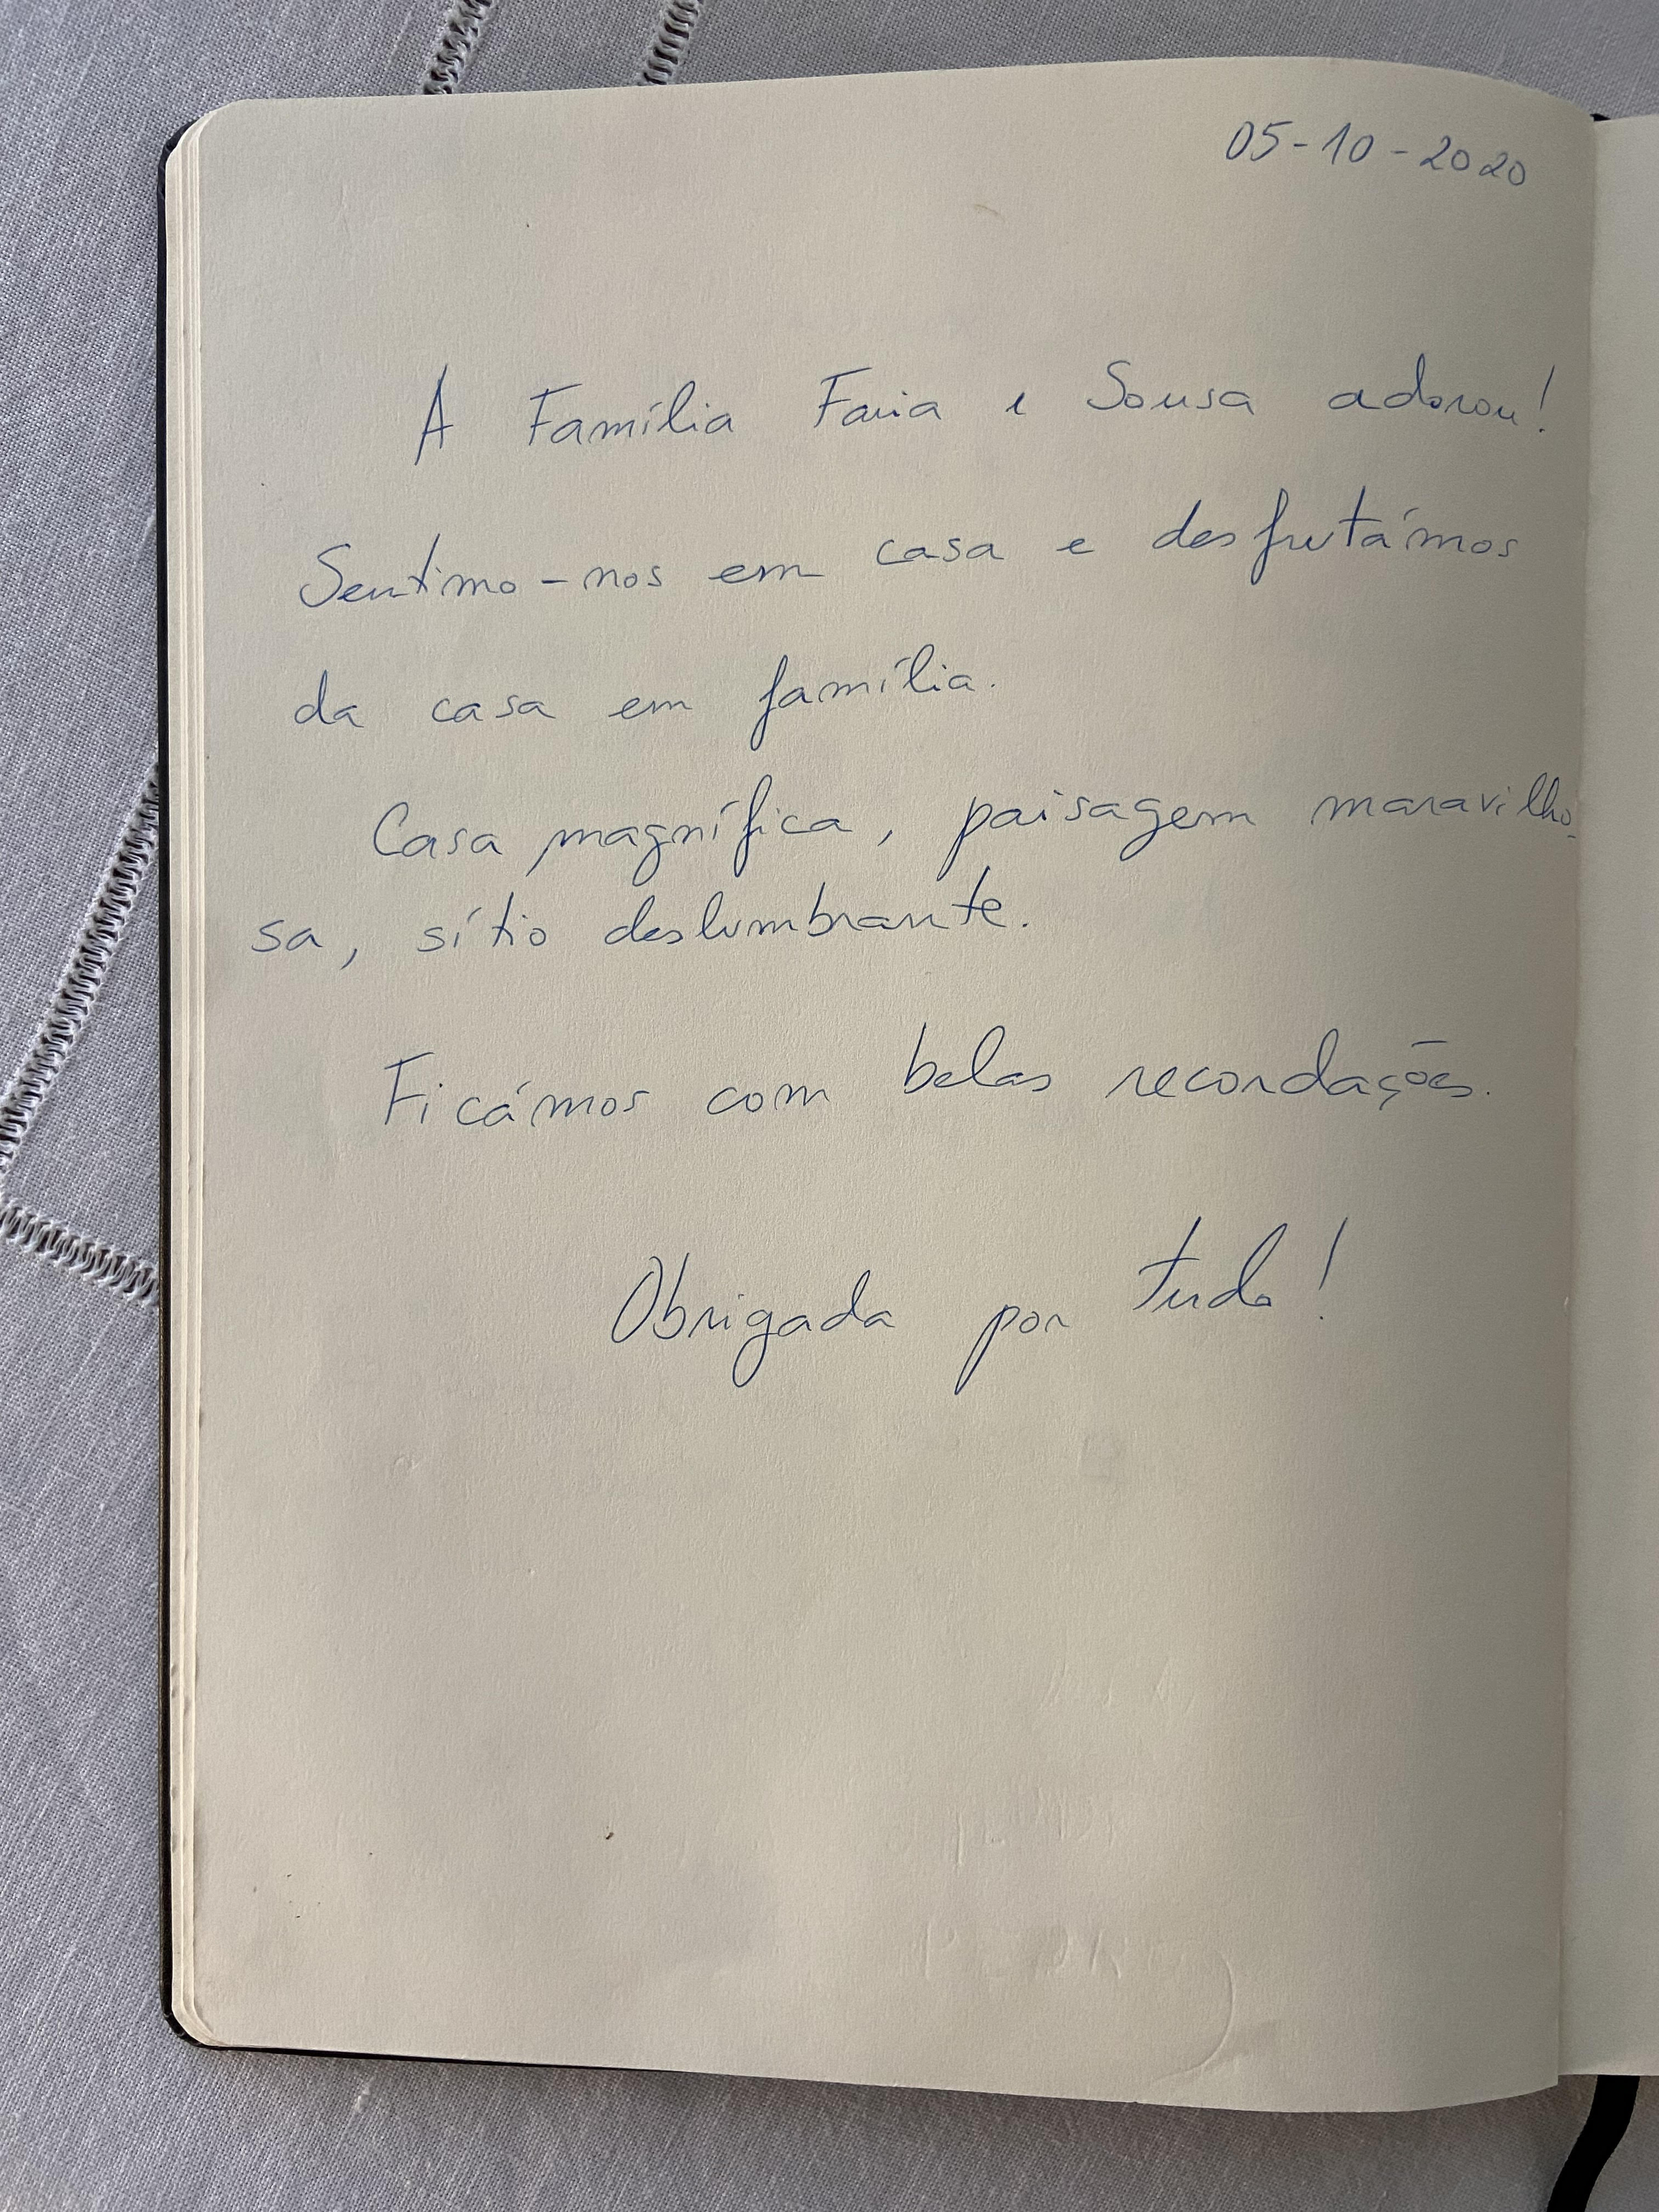 05-10-2020
A Família Faria e Sousa adorou!
Sentimo-nos em casa e desfrutámos
da casa em família.
Casa magnífica, paisagem maravilho-
sa, sítio deslumbrante.
Ficámos com belas recordações.
Obrigada por tudo!